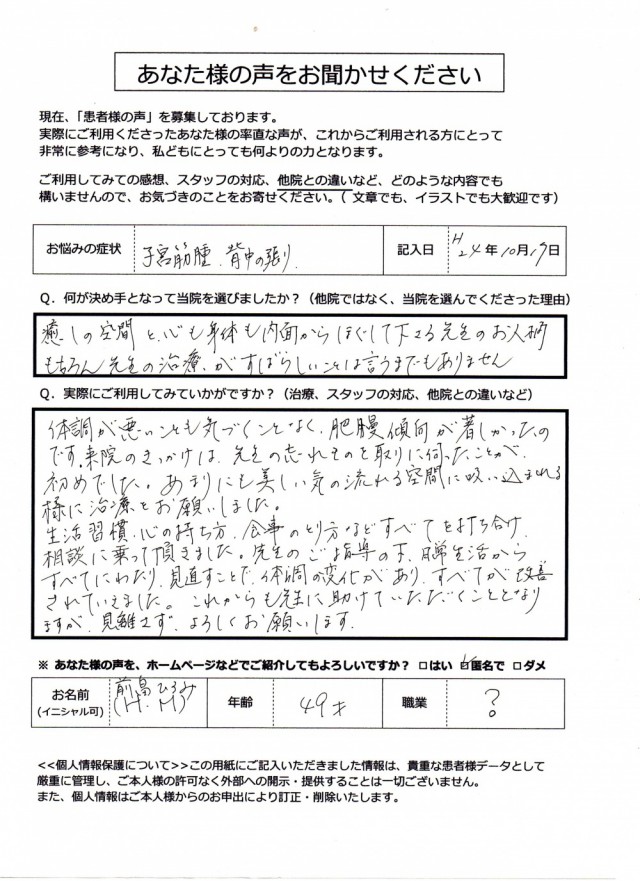 あなた様の声をお聞かせください
現在、「患者様の声」を募集しております。
実際にご利用くださったあなた様の率直な声が、これからご利用される方にとって
非常に参考になり、私どもにとっても何よりの力となります。
ご利用してみての感想、スタッフの対応、他院との違いなど、どのような内容でも
構いませんので、お気づきのことをお寄せください。（ 文章でも、イラストでも大歓迎です）
お悩みの症状 子宮筋腫、背中の張り 記入日 H24年10月19日
Ｑ．何が決め手となって当院を選びましたか？（他院ではなく、当院を選んでくださった理由）
癒しの空間と、心も身体も内面からほぐして下さる先生のお人柄
もちろん先生の治療がすばらしいことは言うまでもありません
Ｑ．実際にご利用してみていかがですか？（治療、スタッフの対応、他院との違いなど）
体調が悪いことも気づくことなく、肥満傾向が著しかったの
です。来院のきっかけは、先生の忘れものを取りに伺ったことが
初めてでした。あまりにも美しい気の流れる空間に吸い込まれる
様に治療をお願いしました。
生活習慣、心の持ち方、食事のとり方などすべてを打ち合け
相談に乗って頂きました。先生のご指導の下、日常生活から
すべてにわたり、見直すことで、体調の変化があり、すべてが改善
されていきました。これからも先生に助けていただくこととなり
ますが、見離さず、よろしくお願いします。
※ あなた様の声を、ホームページなどでご紹介してもよろしいですか？ □はい ☑匿名で □ダメ
お名前
（イニシャル可）
(H. M)
年齢 49才 職業 ？
<<個人情報保護について>>この用紙にご記入いただきました情報は、貴重な患者様データとして
厳重に管理し、ご本人様の許可なく外部への開示・提供することは一切ございません。
また、個人情報はご本人様からのお申出により訂正・削除いたします。